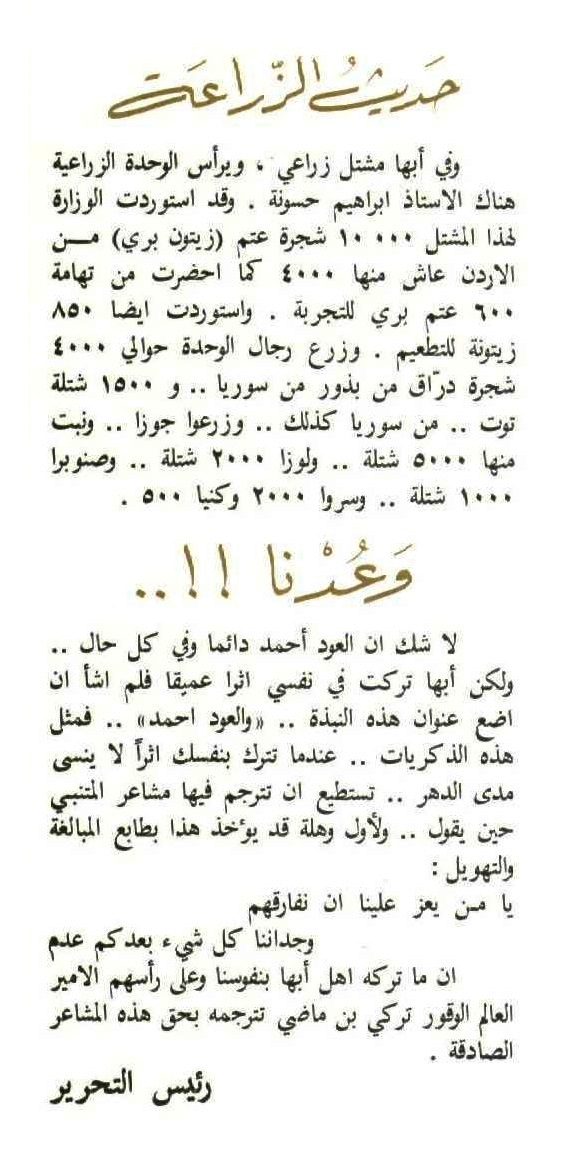 حَديثُ الزّراعَة
وفي أبها مشتل زراعي ، ويرأس الوحدة الزراعية
هناك الاستاذ ابراهيم حسونة . وقد استوردت الوزارة
لهذا المشتل ١٠ ٠٠٠ شجرة عتم (زيتون بري) مــن
الاردن عاش منها ٤٠٠٠ كما احضرت من تهامة
٦٠٠ عتم بري للتجربة . واستوردت ايضا ٨٥٠
زيتونة للتطعيم . وزرع رجال الوحدة حوالي ٤٠٠٠
شجرة درّاق من بذور من سوريا .. و ١٥٠٠ شتلة
توت .. من سوريا كذلك .. وزرعوا جوزا .. ونبت
منها ٥٠٠٠ شتلة .. ولوزا ٢٠٠٠ شتلة .. وصنوبرا
١٠٠٠ شتلة .. وسروا ٢٠٠٠ وكنيا ٥٠٠ .
وَعُدْنا !! ..
لا شك ان العود أحمد دائما وفي كل حال ..
ولكن أبها تركت في نفسي اثرا عميقا فلم اشأ ان
اضع عنوان هذه النبذة .. «والعود احمد» .. فمثل
هذه الذكريات .. عندما تترك بنفسك اثراً لا ينسى
مدى الدهر .. تستطيع ان تترجم فيها مشاعر المتنبي
حين يقول .. ولأول وهلة قد يؤخذ هذا بطابع المبالغة
والتهويل :
يا مـن يعز علينا ان نفارقهم
وجداننا كل شيء بعدكم عدم
ان ما تركه اهل أبها بنفوسنا وعلى رأسهم الامير
العالم الوقور تركي بن ماضي تترجمه بحق هذه المشاعر
الصادقة .
رئيس التحرير